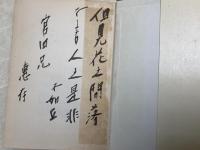 但見花之開落
不言人之是非
宮田兄
惠存